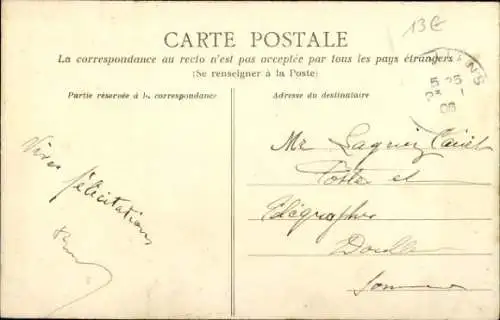 13€
CARTE POSTALE
La correspondance au recto n'est pas acceptée par tous les pays étrangers
(Se renseigner à la Poste)
Partie réservée à la correspondance
Adresse du destinataire
5 25
23 1
06
Vives
félicitations
Mr
Postes et
Télégraphes
Doullens
Somme